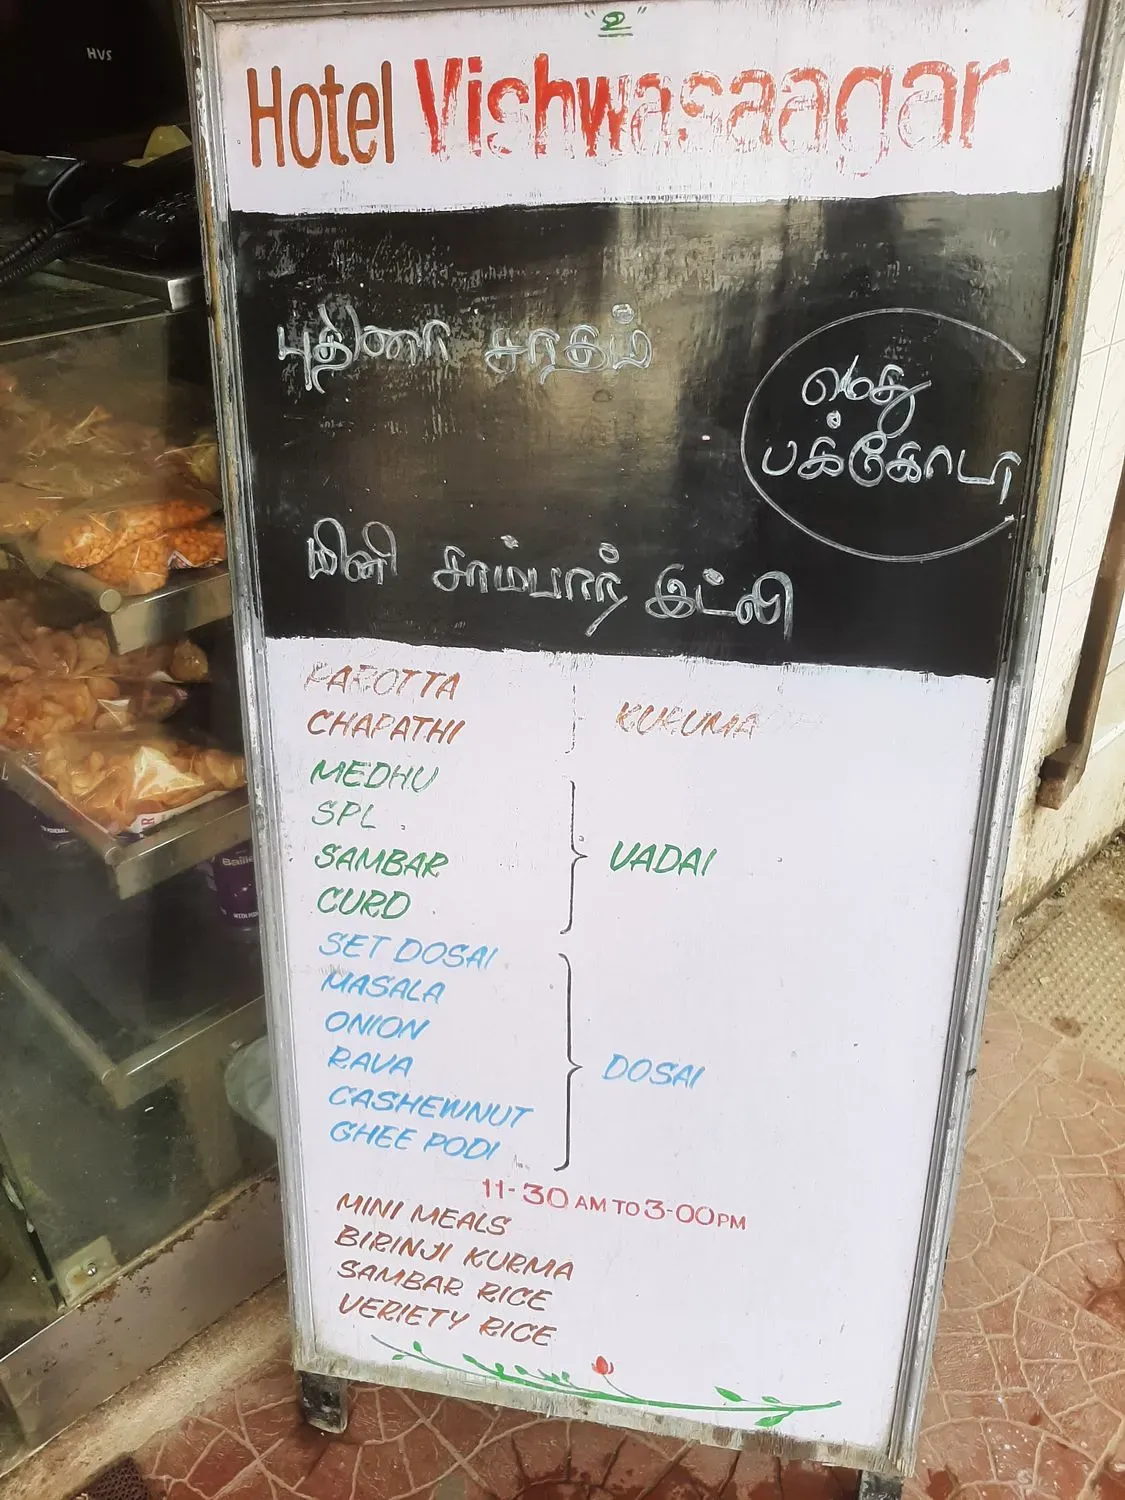 HVS
"உ"
Hotel Vishwasaagar
புதினா சாதம்
மெது
பக்கோடா
மினி சாம்பார் இட்லி
PAROTTA
CHAPATHI
KURUMA
MEDHU
SPL.
SAMBAR
CURD
VADAI
SET DOSAI
MASALA
ONION
RAVA
CASHEWNUT
GHEE PODI
DOSAI
11-30 AM TO 3-00 PM
MINI MEALS
BIRINJI KURMA
SAMBAR RICE
VERIETY RICE